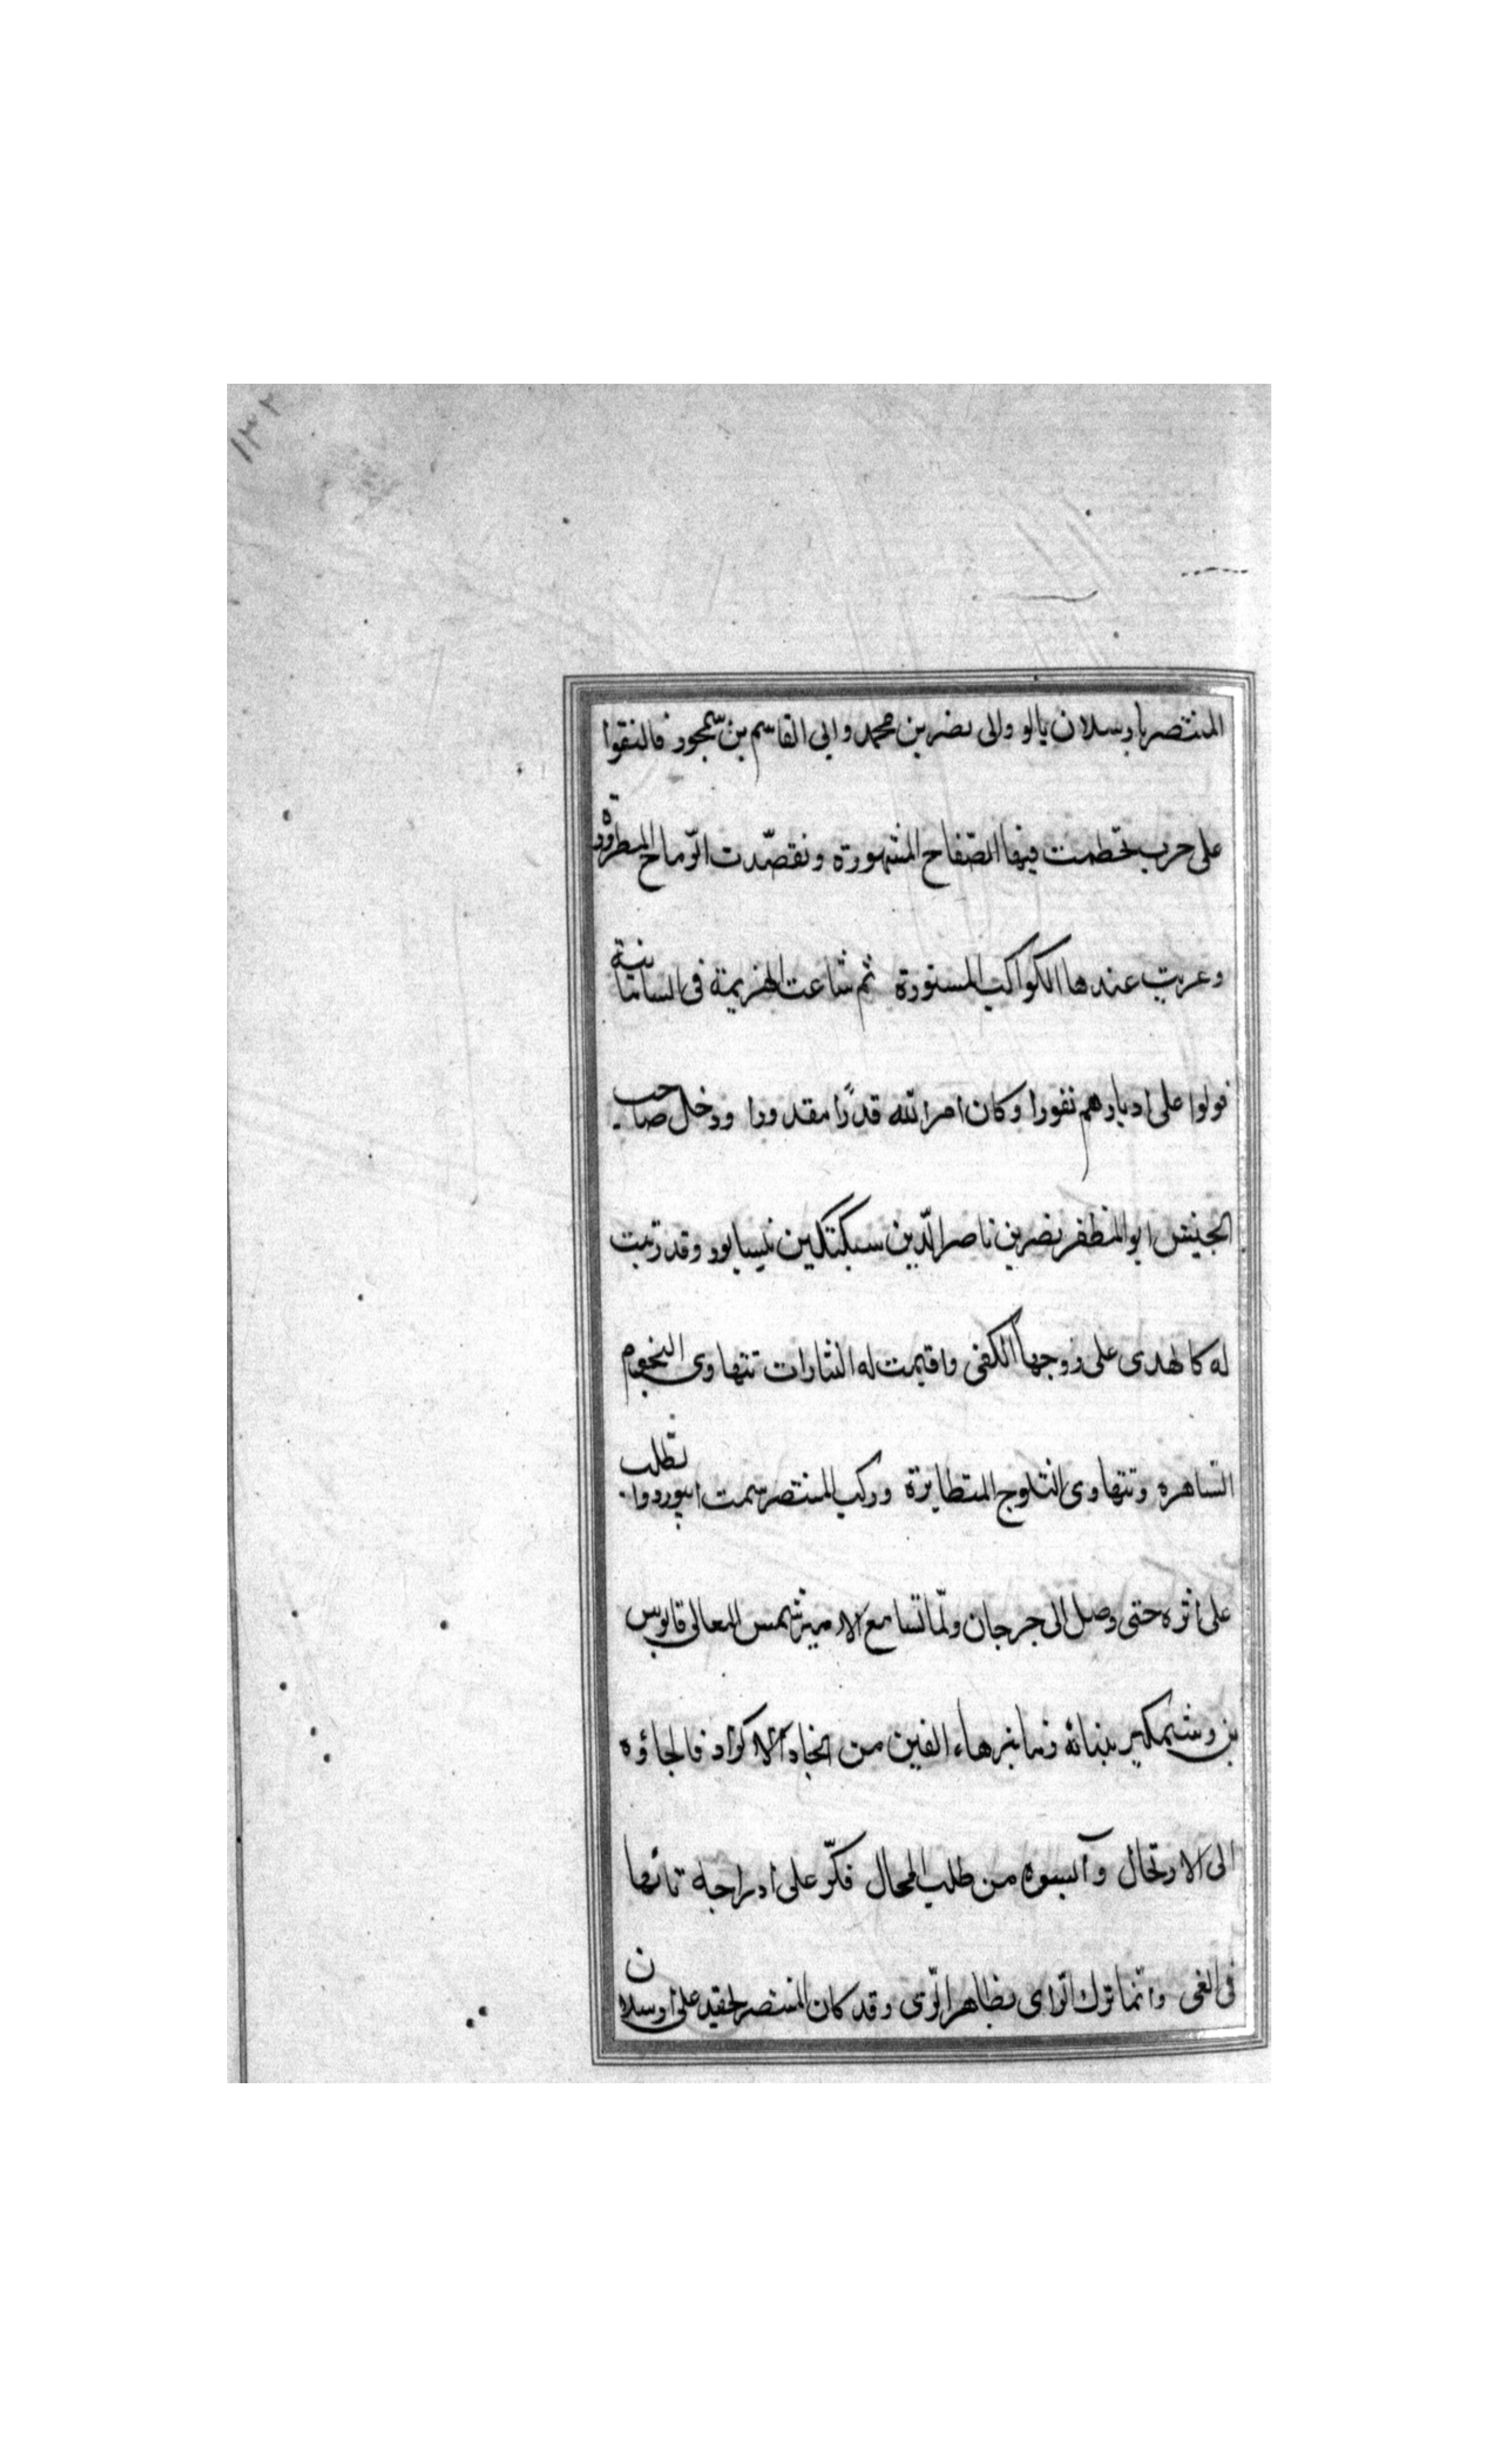 ١٣٢
المنتصر بارسلان يالو والى نصر بن محمد وابي القاسم بن سمجور فالتقوا
على حرب تحطمت فيها الصفاح المشهورة وتقصّدت الرّماح المطرورة
وعريت عندها الكواكب المستورة ثم شاعت الهزيمة فى السامانية
فولوا على ادبارهم نفورا وكان امر الله قدرًا مقدورا ودخل صاحب
الجيش ابو المظفر نصر بن ناصر الدّين سبكتكين نيسابور وقد زينت
له كالهدى على زوجها الكفى واقيمت له النثارات تتهاوى النجوم
السّاهره وتتهاوى الثلوج المتطايرة وركب المنتصر سمت ابيورد والطلب
على اثره حتى وصل الى جرجان ولمّا تسامع الامير شمس المعالى قابوس
بن وشمكير بنبائه رماه بزهاء الفين من انجاد الاكراد فالجاؤه
الى الارتحال وآيسوه من طلب المحال فكرّ على ادراجه تائها
فى الغى وانما ترك الرّاى بظاهر الرّى وقد كان المنتصر لحقيد على ارسلان